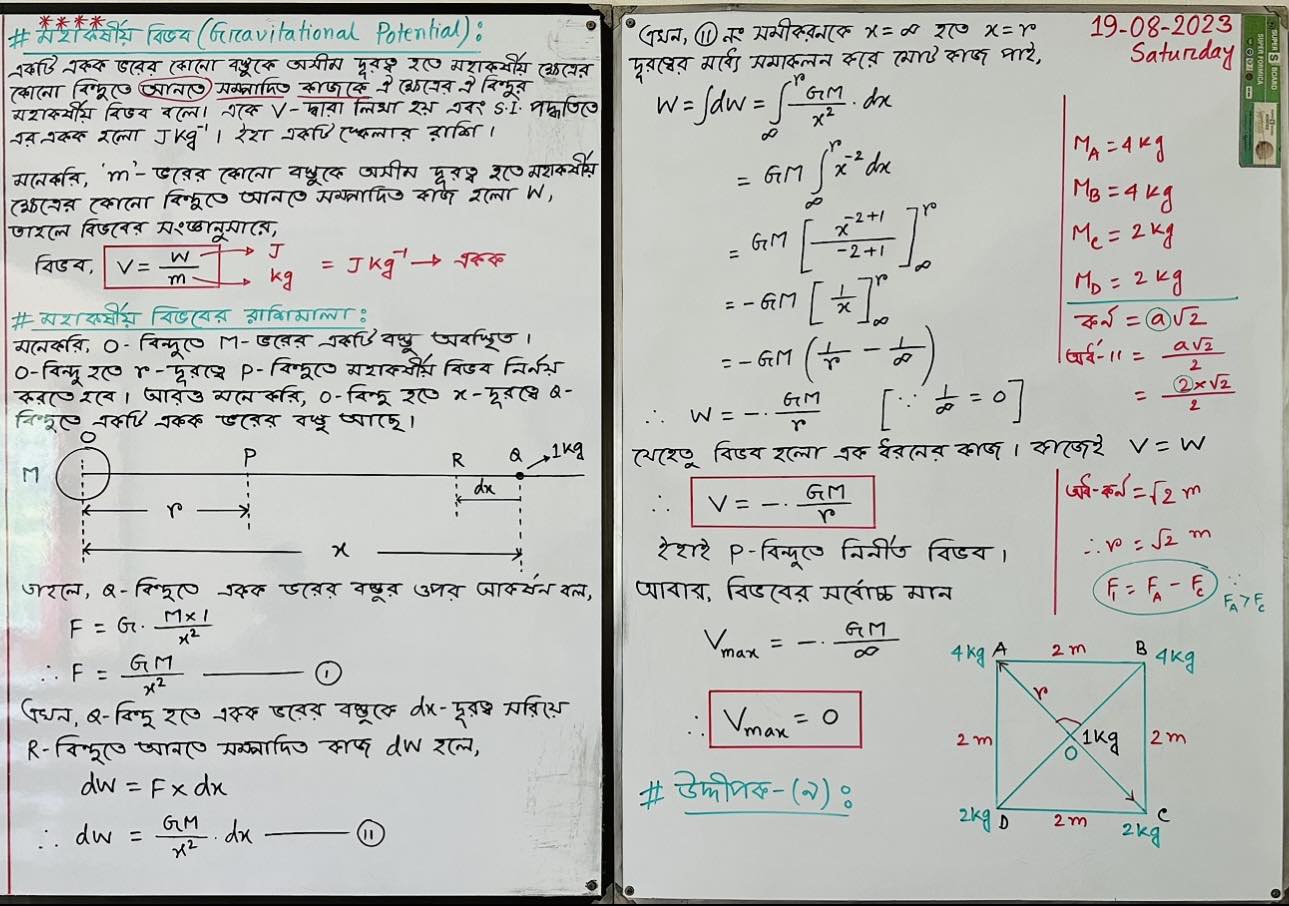 ****
# মহাকর্ষীয় বিভব (Gravitational Potential) :
একটি একক ভরের কোনো বস্তুকে অসীম দূরত্ব হতে মহাকর্ষীয় ক্ষেত্রের
কোনো বিন্দুতে আনতে সম্পাদিত কাজকে ঐ ক্ষেত্রের ঐ বিন্দুর
মহাকর্ষীয় বিভব বলে। একে V-দ্বারা লিখা হয় এবং S.I. পদ্ধতিতে
এর একক হলো JKg⁻¹। ইহা একটি স্কেলার রাশি।
মনেকরি, 'm'-ভরের কোনো বস্তুকে অসীম দূরত্ব হতে মহাকর্ষীয়
ক্ষেত্রের কোনো বিন্দুতে আনতে সম্পাদিত কাজ হলো W,
তাহলে বিভবের সংজ্ঞানুসারে,
বিভব, V = W/m → J → kg = JKg⁻¹ → একক
# মহাকর্ষীয় বিভবের রাশিমালা :
মনেকরি, O-বিন্দুতে M-ভরের একটি বস্তু অবস্থিত।
O-বিন্দু হতে r-দূরত্বে P-বিন্দুতে মহাকর্ষীয় বিভব নির্নয়
করতে হবে। আরও মনেকরি, O-বিন্দু হতে x-দূরত্বে Q-
বিন্দুতে একটি একক ভরের বস্তু আছে।
O
M P R Q 1kg
dx
r
x
তাহলে, Q-বিন্দুতে একক ভরের বস্তুর ওপর আকর্ষন বল,
F = G. M×1/x²
∴ F = GM/x² ——— (I)
এখন, Q-বিন্দু হতে একক ভরের বস্তুকে dx-দূরত্ব সরিয়ে
R-বিন্দুতে আনতে সম্পাদিত কাজ dW হলে,
dW = F × dx
∴ dW = GM/x² . dx ——— (II)
এখন, (II) নং সমীকরনকে x = ∞ হতে x = r
দূরত্বের মধ্যে সমাকলন করে মোট কাজ পাই,
W = ∫dW = ∫_∞^r GM/x² . dx
= GM ∫_∞^r x⁻² dx
= GM [x⁻²⁺¹/-2+1]_∞^r
= -GM [1/x]_∞^r
= -GM (1/r - 1/∞)
∴ W = -. GM/r [∵ 1/∞ = 0]
যেহেতু বিভব হলো এক ধরনের কাজ। কাজেই V = W
∴ V = -. GM/r
ইহাই P-বিন্দুতে নির্নীত বিভব।
আবার, বিভবের সর্বোচ্চ মান
Vmax = -. GM/∞
∴ Vmax = 0
# উদ্দীপক-(২) :
19-08-2023
Saturday
SUPER BOARD
SUPER FORMICA
M_A = 4 kg
M_B = 4 kg
M_C = 2 kg
M_D = 2 kg
কর্ন = a√2
অর্ধ-" = a√2/2
= 2×√2/2
অর্ধ-কর্ন = √2 m
∴ r = √2 m
F = F_A - F_C ∵ F_A > F_C
4kg A 2 m B 4kg
r
2 m 1kg 2 m
O
2kg D 2 m C
2kg